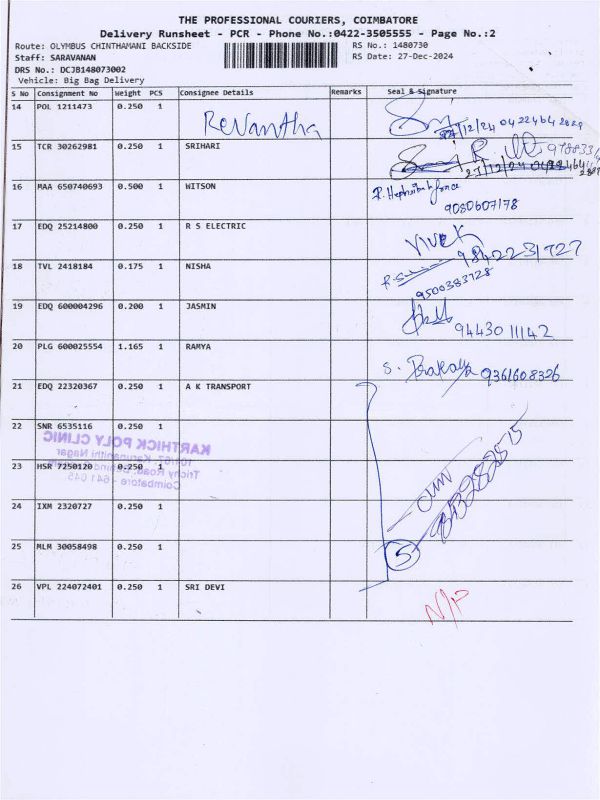 THE PROFESSIONAL COURIERS, COIMBATORE
Delivery Runsheet - PCR - Phone No.:0422-3505555 - Page No.:2
Route: OLYMBUS CHINTHAMANI BACKSIDE RS No.: 1480730
Staff: SARAVANAN RS Date: 27-Dec-2024
DRS No.: DCJB148073002
Vehicle: Big Bag Delivery
S No Consignment No Weight PCS Consignee Details Remarks Seal & Signature
14 POL 1211473 0.250 1 Revantha
15 TCR 30262981 0.250 1 SRIHARI
16 MAA 650740693 0.500 1 WITSON
9080607178
17 EDQ 25214800 0.250 1 R S ELECTRIC VIVEK
9842231727
18 TVL 2418184 0.175 1 NISHA
9500383728
19 EDQ 600004296 0.200 1 JASMIN
94430 11142
20 PLG 600025554 1.165 1 RAMYA S. 9361608326
21 EDQ 22320367 0.250 1 A K TRANSPORT
22 SNR 6535116 0.250 1
KARTHICK POLY CLINIC
Karunanithi Nagar
23 HSR 7250120 0.250 1
Trichy Road,
Coimbatore - 641 045
24 IXM 2320727 0.250 1
25 MLM 30058498 0.250 1 5
26 VPL 224072401 0.250 1 SRI DEVI N/P